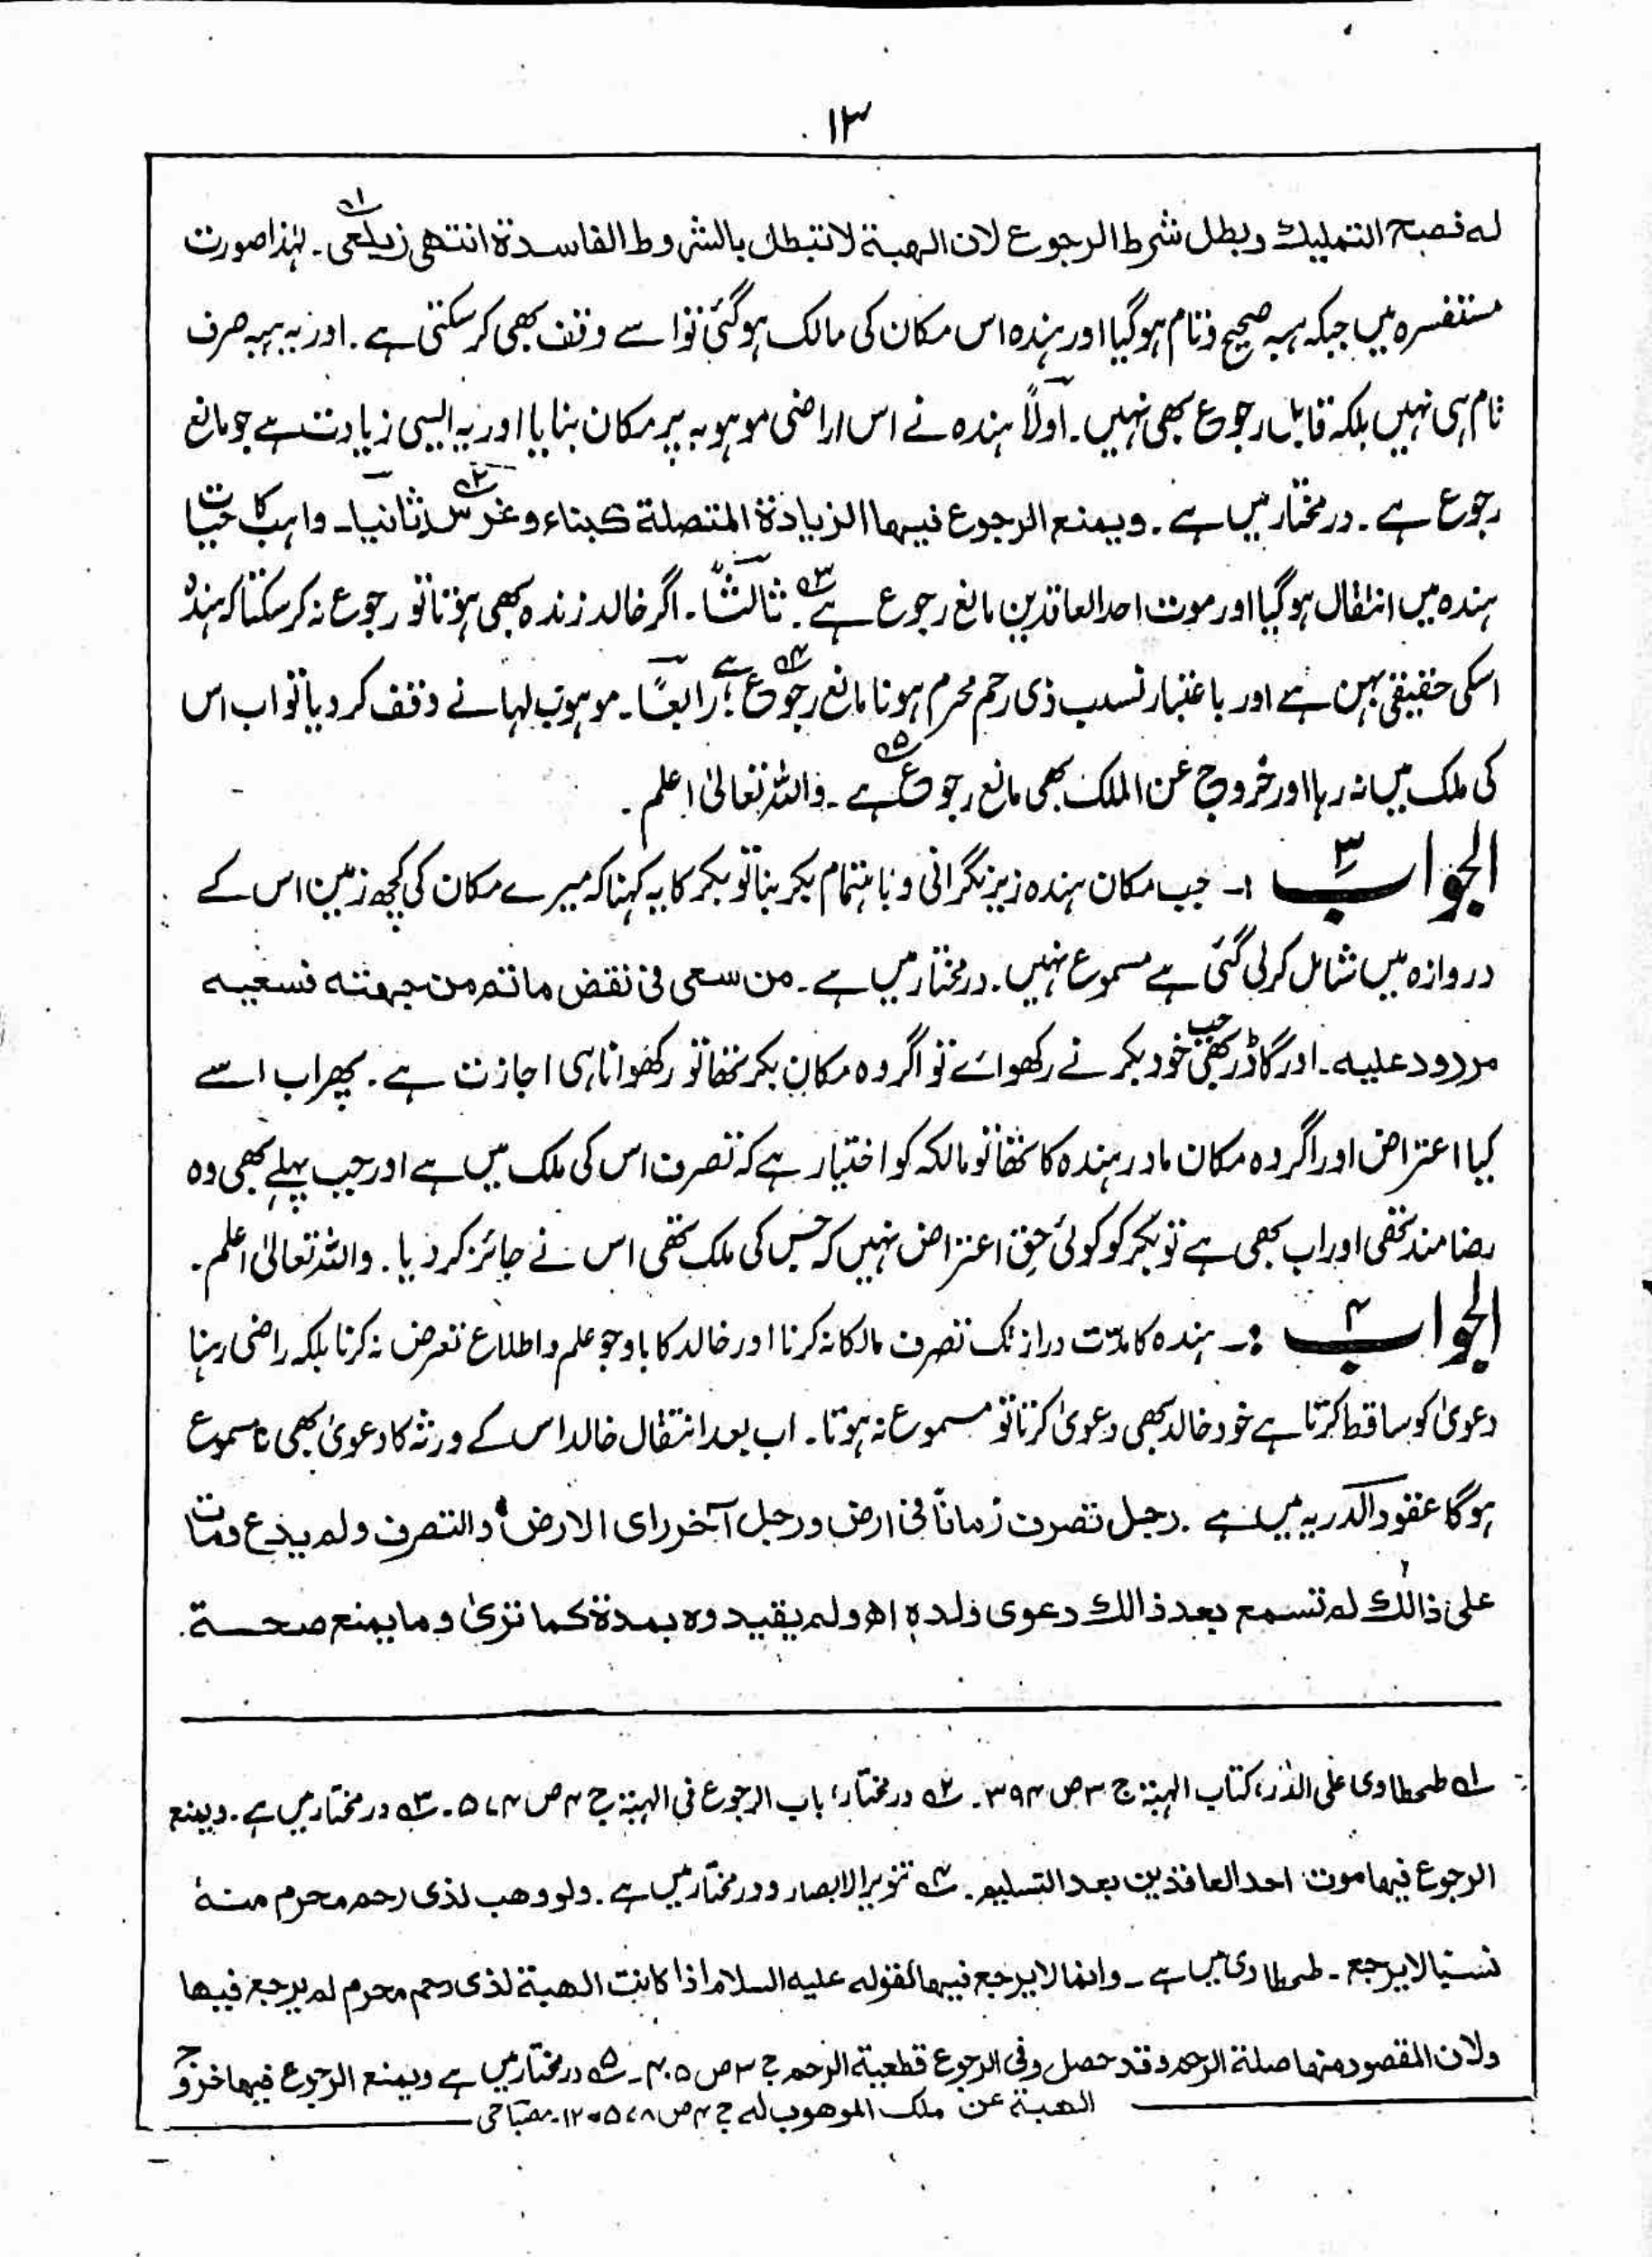 ۱۳
له فصح التمليك وبطل شرط الرجوع لان الهبة لا تبطل بالشروط الفاسدة انتهى زيلعى ۱؎۔ لہٰذا صورت
مستفسرہ میں جبکہ ہبہ صحیح و تام ہوگیا اور ہندہ اس مکان کی مالک ہوگئی تو اسے وقف بھی کرسکتی ہے۔ اور یہ ہبہ صرف
تام ہی نہیں بلکہ قابل رجوع بھی نہیں۔ اولاً ہندہ نے اس اراضی موہوبہ پر مکان بنایا اور یہ ایسی زیادت ہے جو مانع
رجوع ہے۔ درمختار میں ہے۔ ويمنع الرجوع فيها الزيادة المتصلة كبناء وغرس ۲؎ ثانیا۔ واہب کا حیات
ہندہ میں انتقال ہوگیا اور موت احد العاقدین مانع رجوع ہے ۳؎۔ ثالثاً۔ اگر خالد زندہ بھی ہوتا تو رجوع نہ کرسکتا کہ ہندہ
اسکی حقیقی بہن ہے اور باعتبار نسب ذی رحم محرم ہونا مانع رجوع ۴؎ ہے؛ رابعًا۔ موہوب لہا نے وقف کردیا تو اب اس
کی ملک میں نہ رہا اور خروج عن الملک بھی مانع رجوع ۵؎ ہے۔ واللہ تعالیٰ اعلم۔
الجواب ۳ :۔ جب مکان ہندہ زیر نگرانی و باہتمام بکر بنا تو بکر کا یہ کہنا کہ میرے مکان کی کچھ زمین اس کے
دروازہ میں شامل کرلی گئی ہے مسموع نہیں۔ درمختار میں ہے۔ من سعى فى نقض ماتم من جهته فسعيه
مردود عليه۔ اور گاڈر بھی جب خود بکر نے رکھوائے تو اگر وہ مکان بکر تھا تو رکھوانا ہی اجازت ہے۔ پھر اب اسے
کیا اعتراض اور اگر وہ مکان مادر ہندہ کا تھا تو مالکہ کو اختیار ہے کہ تصرف اس کی ملک میں ہے اور جب پہلے بھی وہ
رضامند تھی اور اب بھی ہے تو بکر کو کوئی حق اعتراض نہیں کہ جس کی ملک تھی اس نے جائز کردیا۔ واللہ تعالیٰ اعلم۔
الجواب ۴ :۔ ہندہ کا مدّت دراز تک تصرف مالکانہ کرنا اور خالد کا باوجو علم و اطلاع تعرض نہ کرنا بلکہ راضی رہنا
دعویٰ کو ساقط کرتا ہے خود خالد بھی دعویٰ کرتا تو مسموع نہ ہوتا۔ اب بعد انتقال خالد اس کے ورثہ کا دعویٰ بھی نامسموع
ہوگا عقود الدریہ میں ہے۔ رجل تصرف زماناً فى ارض ورجل آخر راى الارض والتصرف ولم يدع ومات
على ذالك لم تسمع بعد ذالك دعوى ولده اھ ولم يقيدوه بمدة كما ترىٰ و ما يمنع صحة.
۱؎ طحطاوی علی الدر، کتاب الہبۃ ج ۳ ص ۳۹۴۔ ۲؎ درمختار، باب الرجوع فی الہبۃ ج ۴ ص ۵۷۴۔ ۳؎ درمختار میں ہے۔ ویمنع
الرجوع فيها موت احد العاقدين بعد التسليم۔ ۴؎ تنویر الابصار و درمختار میں ہے۔ ولو وهب لذى رحم محرم منه
نسبًا لا يرجع۔ طحطاوی میں ہے۔ وانما لا يرجع فيها لقوله عليه السلام اذا كانت الهبة لذى رحم محرم لم يرجع فيها
ولان المقصود منها صلة الرحم وقد حصل وفى الرجوع قطعية الرحم ج ۳ ص ۴۰۵۔ ۵؎ درمختار میں ہے ويمنع الرجوع فيها خروج
الهبة عن ملك الموهوب له ج ۴ ص ۵۷۸۔ ۱۲ مصباحی